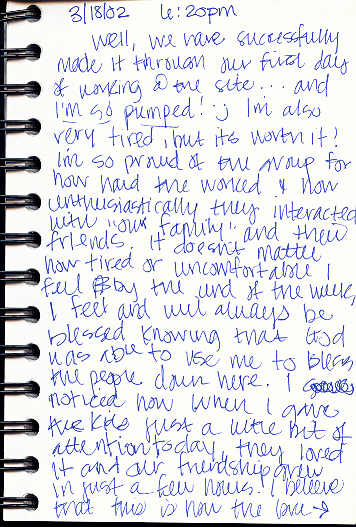 3/18/02 6:20pm
Well, we have successfully
made it through our first day
of working @ the site... and
I'm so pumped! :) I'm also
very tired, but its worth it!
I'm so proud of the group for
how hard the worked & how
enthusiastically they interacted
with "our family" and their
friends. It doesn't matter
how tired or uncomfortable I
feel by the end of the week,
I feel and will always be
blessed knowing that God
was able to use me to bless
the people down here. I
noticed how when I gave
the kids just a little bit of
attention today, they loved
it and our friendship grew
in just a few hours. I believe
that this is how the love →